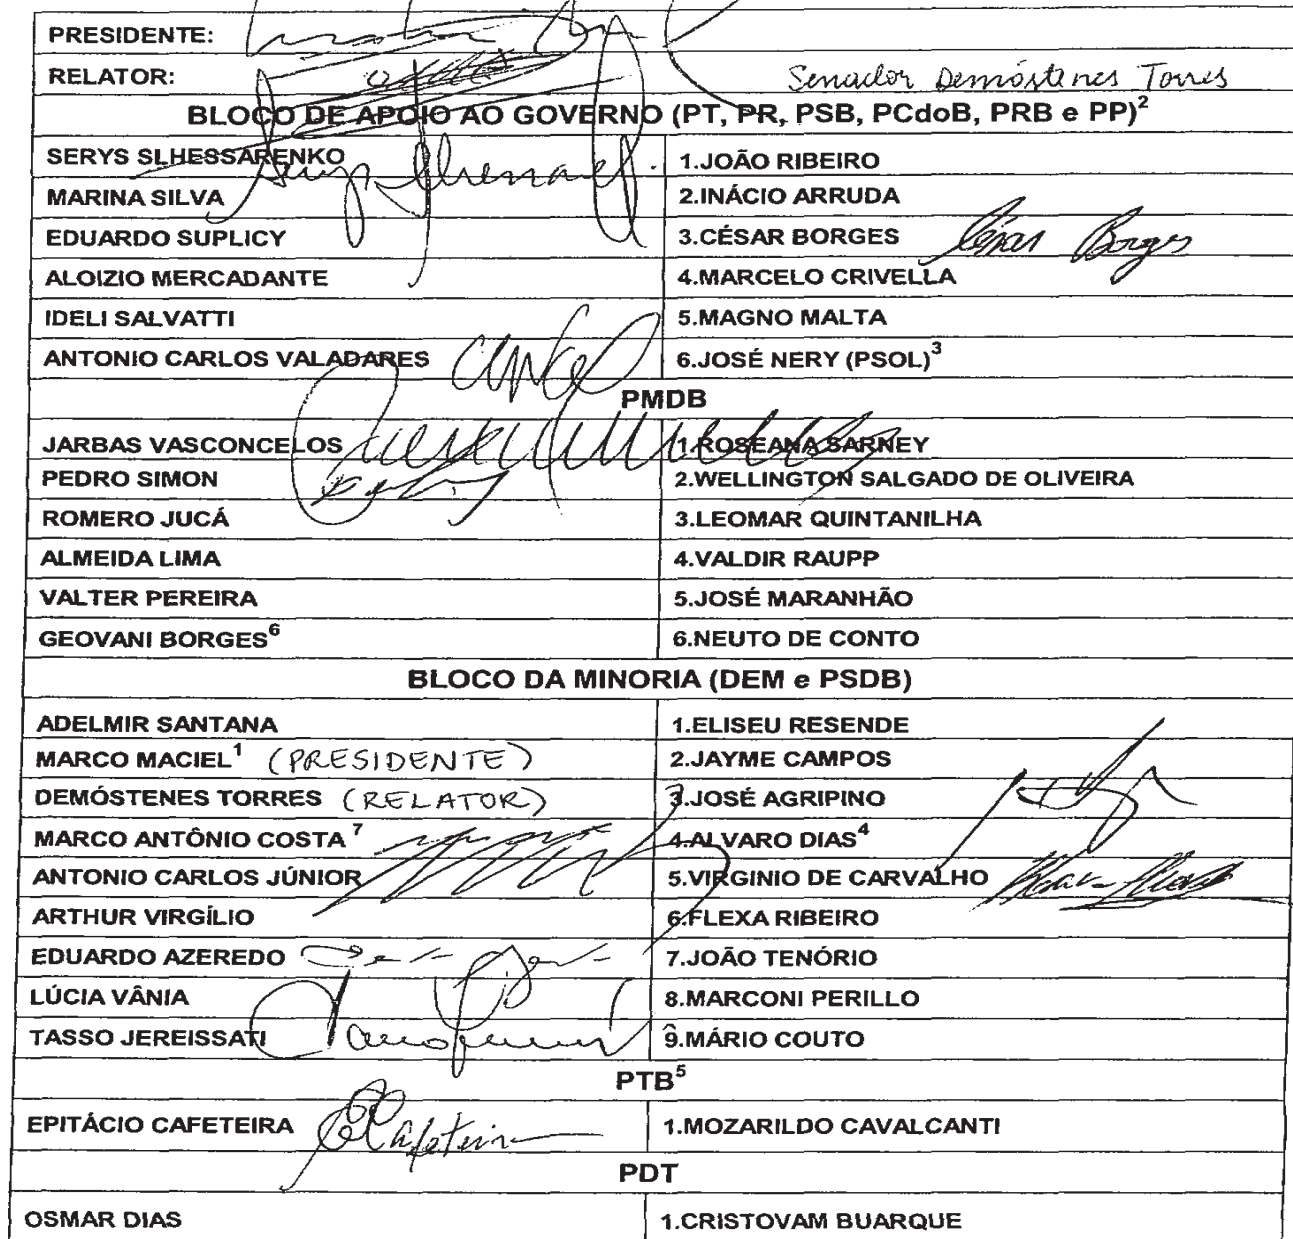 PRESIDENTE:
RELATOR: Senador Demóstenes Torres
BLOCO DE APOIO AO GOVERNO (PT, PR, PSB, PCdoB, PRB e PP)²
SERYS SLHESSARENKO 1.JOÃO RIBEIRO
MARINA SILVA 2.INÁCIO ARRUDA
EDUARDO SUPLICY 3.CÉSAR BORGES César Borges
ALOIZIO MERCADANTE 4.MARCELO CRIVELLA
IDELI SALVATTI 5.MAGNO MALTA
ANTONIO CARLOS VALADARES 6.JOSÉ NERY (PSOL)³
PMDB
JARBAS VASCONCELOS 1.ROSEANA SARNEY
PEDRO SIMON 2.WELLINGTON SALGADO DE OLIVEIRA
ROMERO JUCÁ 3.LEOMAR QUINTANILHA
ALMEIDA LIMA 4.VALDIR RAUPP
VALTER PEREIRA 5.JOSÉ MARANHÃO
GEOVANI BORGES⁶ 6.NEUTO DE CONTO
BLOCO DA MINORIA (DEM e PSDB)
ADELMIR SANTANA 1.ELISEU RESENDE
MARCO MACIEL¹ (PRESIDENTE) 2.JAYME CAMPOS
DEMÓSTENES TORRES (RELATOR) 3.JOSÉ AGRIPINO
MARCO ANTÔNIO COSTA ⁷ 4.ALVARO DIAS⁴
ANTONIO CARLOS JÚNIOR 5.VIRGINIO DE CARVALHO
ARTHUR VIRGÍLIO 6.FLEXA RIBEIRO
EDUARDO AZEREDO 7.JOÃO TENÓRIO
LÚCIA VÂNIA 8.MARCONI PERILLO
TASSO JEREISSATI 9.MÁRIO COUTO
PTB⁵
EPITÁCIO CAFETEIRA ECafeteira 1.MOZARILDO CAVALCANTI
PDT
OSMAR DIAS 1.CRISTOVAM BUARQUE